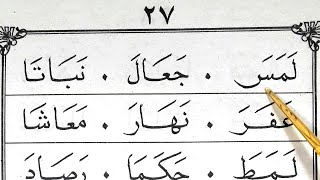 ٢٧
لَمَسَ . جَعَالَ . نَبَاتَا
غَفَرَ . نَهَارَ . مَعَاشَا
لَمَطَ . حَكَمَا . رَصَادَ